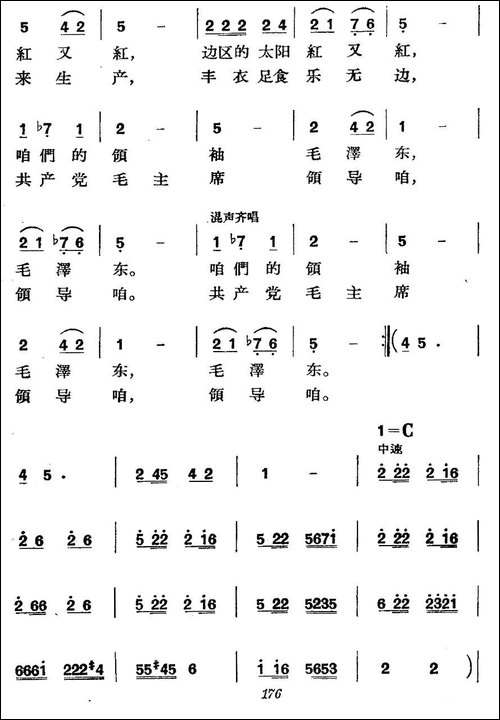 5 4 2 | 5 - | 2 2 2 2 4 | 2 1 7 6 | 5 -
紅 又 紅， 边区的 太阳 紅 又 紅，
来 生 产， 丰 衣 足食 乐 无 边，
1 ♭7 1 | 2 - | 5 - | 2 4 2 | 1 -
咱 們 的 領 袖 毛 澤 东，
共 产 党 毛 主 席 領 导 咱，
混声齐唱
2 1 ♭7 6 | 5 - | 1 ♭7 1 | 2 - | 5 -
毛 澤 东。 咱 們 的 領 袖
領 导 咱。 共 产 党 毛 主 席
2 4 2 | 1 - | 2 1 ♭7 6 | 5 - :|| ( 4 5 .
毛 澤 东， 毛 澤 东。
領 导 咱， 領 导 咱。
1=C
中速
4 5 . | 2 45 4 2 | 1 - | 2 22 2 16
2 6 2 6 | 5 22 2 16 | 5 22 5671 | 2 22 2 16
2 66 2 6 | 5 22 2 16 | 5 22 5235 | 6 22 2321
6661 222#4 | 55#45 6 | 1 16 5653 | 2 2 ) |
176